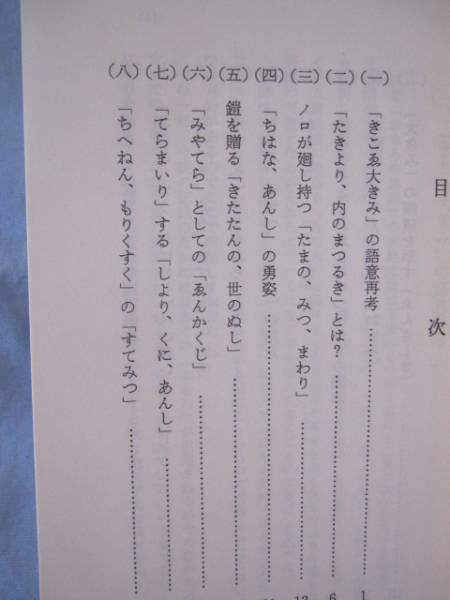 目次
(一)「きこゑ大きみ」の語意再考……………………1
(二)「たきより、内のまつるき」とは?……………………6
(三)ノロが廻し持つ「たまの、みつ、まわり」……………………
(四)「ちはな、あんし」の勇姿……………………
(五)鎧を贈る「きたたんの、世のぬし」……………………
(六)「みやてら」としての「ゑんかくじ」……………………
(七)「てらまいり」する「しより、くに、あんし」……………………
(八)「ちへねん、もりくすく」の「すてみつ」……………………